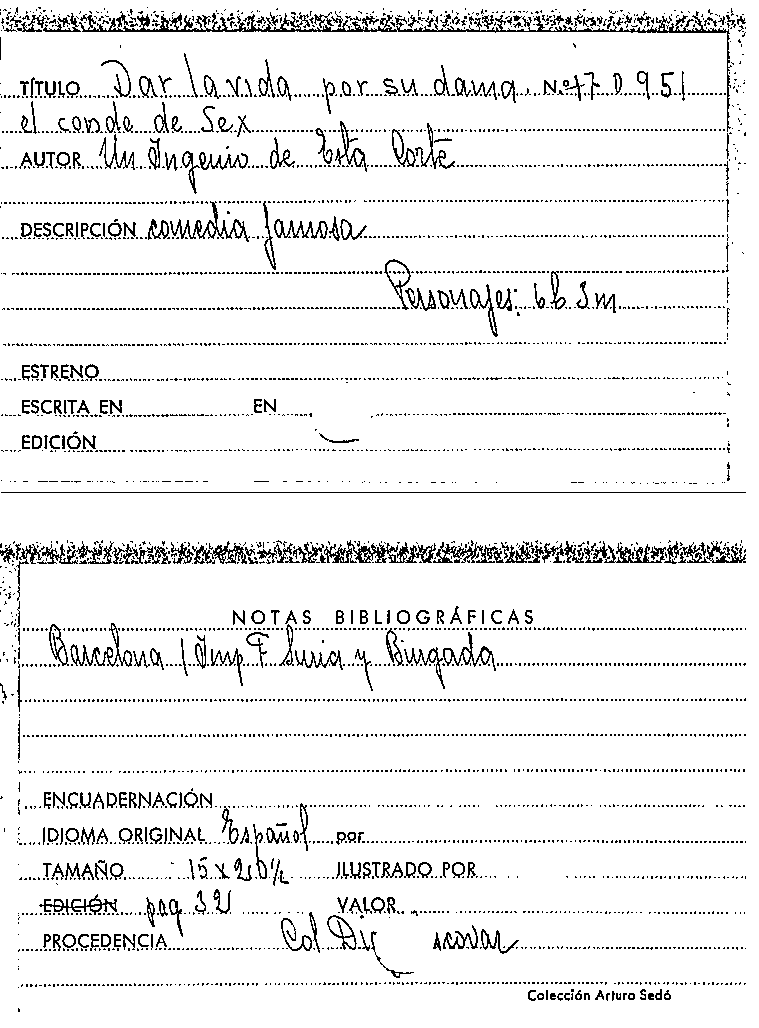 TÍTULO Dar la vida por su dama. Nº 77 D 951
el conde de Sex
AUTOR Un Ingenio de Esta Corte
DESCRIPCIÓN comedia famosa
Personajes: 6h 3m
ESTRENO
ESCRITA EN EN
EDICIÓN
NOTAS BIBLIOGRÁFICAS
Barcelona / Imp F Suria y Burgada
ENCUADERNACIÓN
IDIOMA ORIGINAL Español por
TAMAÑO 15 x 20½ ILUSTRADO POR
EDICIÓN pag 32 VALOR
PROCEDENCIA Col Div
Colección Arturo Sedó